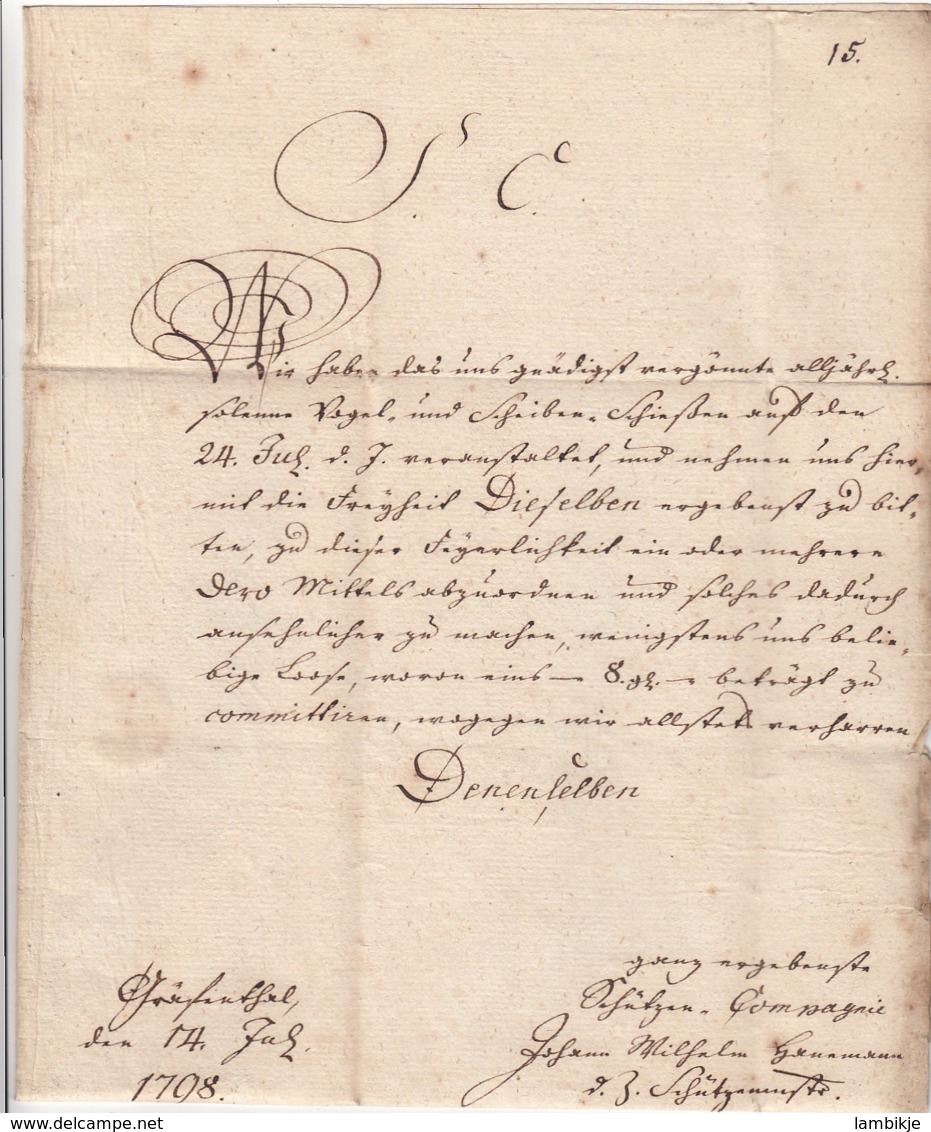 15.
S. C.
Wir haben das uns gnädigst vergönnte alljährl.
solenne Vogel- und Scheiben-Schießen auf den
24. Jul. d. J. veranstaltet, und nehmen uns hier-
mit die Freyheit Dieselben ergebenst zu bit-
ten, zu dieser Feyerlichkeit ein oder mehrere
Dero Mittels abzuordnen und solches dadurch
ansehnlicher zu machen, wenigstens uns belie-
bige Loose, wovon eins — 8. gl. — beträgt zu
committiren, wogegen wir allstets verharren
Denenselben
ganz ergebenste
Gräfenthal,
Schützen-Compagnie
den 14. Jul.
Johann Wilhelm Hanemann
1798.
d. Z. Schützenmstr.
delcampe.net
lambikje